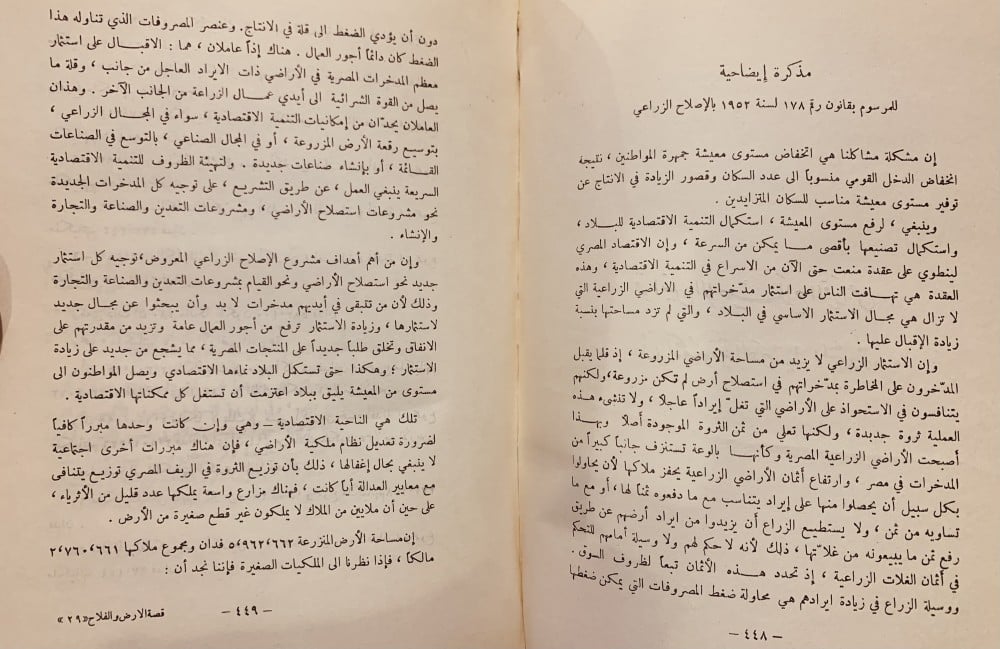 مذكرة إيضاحية
للمرسوم بقانون رقم ١٧٨ لسنة ١٩٥٢ بالإصلاح الزراعي
إن مشكلة مشاكلنا هي انخفاض مستوى معيشة جمهرة المواطنين ، نتيجة
انخفاض الدخل القومي منسوباً الى عدد السكان وقصور الزيادة في الانتاج عن
توفير مستوى معيشة مناسب للسكان المتزايدين .
وينبغي ، لرفع مستوى المعيشة ، استكمال التنمية الاقتصادية للبلاد ،
واستكمال تصنيعها بأقصى ما يمكن من السرعة ، وإن الاقتصاد المصري
لينطوي على عقدة منعت حتى الآن من الاسراع في التنمية الاقتصادية ، وهذه
العقدة هي تهافت الناس على استثمار مدخراتهم في الاراضي الزراعية التي
لا تزال هي مجال الاستثمار الاساسي في البلاد ، والتي لم تزد مساحتها بنسبة
زيادة الإقبال عليها .
وإن الاستثمار الزراعي لا يزيد من مساحة الأراضي المزروعة ، إذ قلما يقبل
المدّخرون على المخاطرة بمدّخراتهم في استصلاح أرض لم تكن مزروعة ، ولكنهم
يتنافسون في الاستحواذ على الأراضي التي تغلّ إيراداً عاجلاً ، ولا تنشىء هذه
العملية ثروة جديدة ، ولكنها تعلي من ثمن الثروة الموجودة أصلاً وبهذا
أصبحت الأراضي الزراعية المصرية وكأنها بالوعة تستنزف جانباً كبيراً من
المدخرات في مصر ، وارتفاع أثمان الأراضي الزراعية يحفز ملاكها لأن يحاولوا
بكل سبيل أن يحصلوا منها على إيراد يتناسب مع ما دفعوه ثمناً لها ، أو مع ما
تساويه من ثمن ، ولا يستطيع الزراع أن يزيدوا من ايراد أرضهم عن طريق
رفع ثمن ما يبيعونه من غلاّتها ، ذلك لأنه لا حكم لهم ولا وسيلة أمامهم للتحكم
في أثمان الغلات الزراعية ، إذ تحدد هذه الأثمان تبعاً لظروف السوق .
ووسيلة الزراع في زيادة ايرادهم هي محاولة ضغط المصروفات التي يمكن ضغطها
– ٤٤٨ –
دون أن يؤدي الضغط الى قلة في الانتاج. وعنصر المصروفات الذي تناوله هذا
الضغط كان دائماً أجور العمال . هناك إذاً عاملان ، هما : الاقبال على استثمار
معظم المدخرات المصرية في الأراضي ذات الايراد العاجل من جانب ، وقلة ما
يصل من القوة الشرائية الى أيدي عمال الزراعة من الجانب الآخر . وهذان
العاملان يحدّان من إمكانيات التنمية الاقتصادية ، سواء في المجال الزراعي ،
بتوسيع رقعة الأرض المزروعة ، أو في المجال الصناعي ، بالتوسع في الصناعات
القائمة ، أو بإنشاء صناعات جديدة . ولتهيئة الظروف للتنمية الاقتصادية
السريعة ينبغي العمل ، عن طريق التشريع ، على توجيه كل المدخرات الجديدة
نحو مشروعات استصلاح الأراضي ، ومشروعات التعدين والصناعة والتجارة
والإنشاء .
وإن من أهم أهداف مشروع الإصلاح الزراعي المعروض، توجيه كل استثمار
جديد نحو استصلاح الأراضي ونحو القيام بمشروعات التعدين والصناعة والتجارة
وذلك لأن من تتبقى في أيديهم مدخرات لا بد وأن يبحثوا عن مجال جديد
لاستثمارها ، وزيادة الاستثمار ترفع من أجور العمال عامة وتزيد من مقدرتهم على
الانفاق وتخلق طلباً جديداً على المنتجات المصرية ، مما يشجع من جديد على زيادة
الاستثمار ؛ وهكذا حتى تستكمل البلاد نماءها الاقتصادي ويصل المواطنون الى
مستوى من المعيشة يليق ببلاد اعتزمت أن تستغل كل ممكناتها الاقتصادية .
تلك هي الناحية الاقتصادية – وهي وإن كانت وحدها مبرراً كافياً
لضرورة تعديل نظام ملكية الأراضي ، فإن هناك مبررات أخرى اجتماعية
لا ينبغي بحال إغفالها ، ذلك بأن توزيع الثروة في الريف المصري توزيع يتنافى
مع معايير العدالة أياً كانت ، فهناك مزارع واسعة يملكها عدد قليل من الأثرياء ،
على حين أن ملايين من الملاك لا يملكون غير قطع صغيرة من الأرض .
إن مساحة الأرض المنزرعة ٥٬٩٦٢٬٦٦٢ فدان ومجموع ملاكها ٢٬٧٦٠٬٦٦١
مالكاً ، فإذا نظرنا الى الملكيات الصغيرة فإننا نجد أن :
– ٤٤٩ –
قصة الارض والفلاح «٢٩»